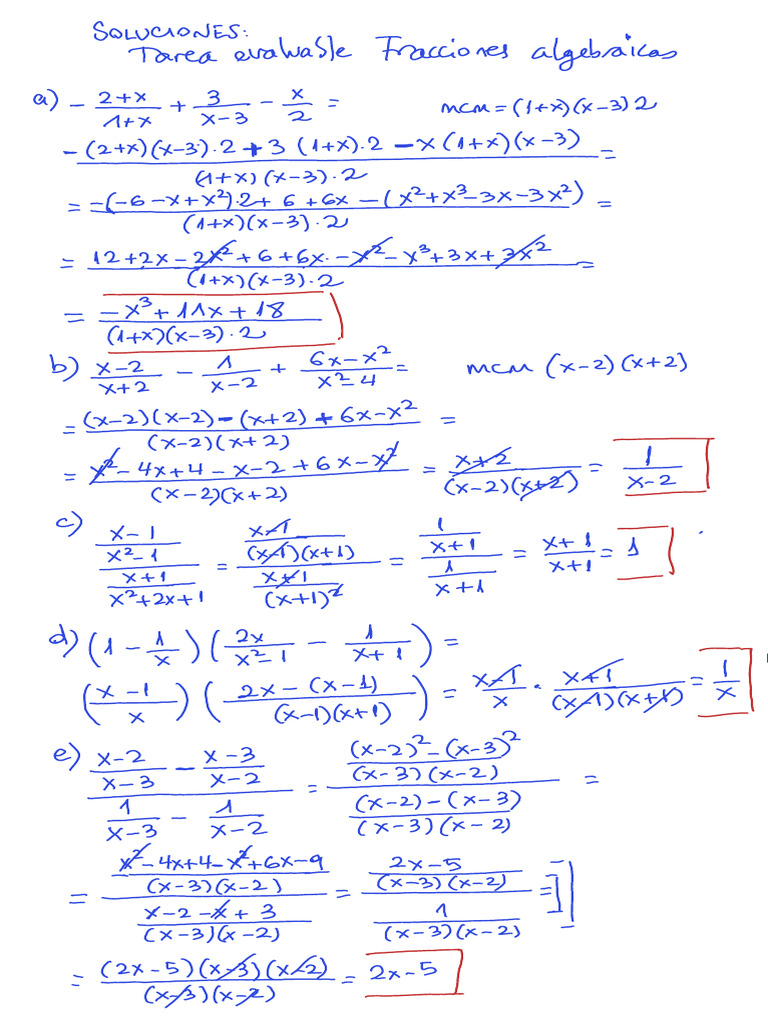 SOLUCIONES:
Tarea evaluable Fracciones algebráicas
a) - (2+x)/(1+x) + 3/(x-3) - x/2 = mcm = (1+x)(x-3)2
(-(2+x)(x-3)·2 + 3(1+x)·2 - x(1+x)(x-3))/((1+x)(x-3)·2) =
= (-(-6-x+x²)·2 + 6 + 6x - (x²+x³-3x-3x²))/((1+x)(x-3)·2) =
= (12+2x-2x²+6+6x-x²-x³+3x+3x²)/((1+x)(x-3)·2) =
= (-x³+11x+18)/((1+x)(x-3)·2)
b) (x-2)/(x+2) - 1/(x-2) + (6x-x²)/(x²-4) = mcm (x-2)(x+2)
= ((x-2)(x-2)-(x+2)+6x-x²)/((x-2)(x+2)) =
= (x²-4x+4-x-2+6x-x²)/((x-2)(x+2)) = (x+2)/((x-2)(x+2)) = 1/(x-2)
c) ((x-1)/(x²-1))/((x+1)/(x²+2x+1)) = ((x-1)/((x-1)(x+1)))/((x+1)/(x+1)²) = (1/(x+1))/(1/(x+1)) = (x+1)/(x+1) = 1
d) (1 - 1/x)(2x/(x²-1) - 1/(x+1)) =
((x-1)/x)((2x-(x-1))/((x-1)(x+1))) = (x-1)/x · (x+1)/((x-1)(x+1)) = 1/x
e) ((x-2)/(x-3) - (x-3)/(x-2))/(1/(x-3) - 1/(x-2)) = (((x-2)²-(x-3)²)/((x-3)(x-2)))/(((x-2)-(x-3))/((x-3)(x-2))) =
= ((x²-4x+4-x²+6x-9)/((x-3)(x-2)))/((x-2-x+3)/((x-3)(x-2))) = ((2x-5)/((x-3)(x-2)))/(1/((x-3)(x-2))) =
= ((2x-5)(x-3)(x-2))/((x-3)(x-2)) = 2x-5